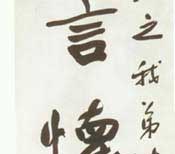 之我弟
言懷